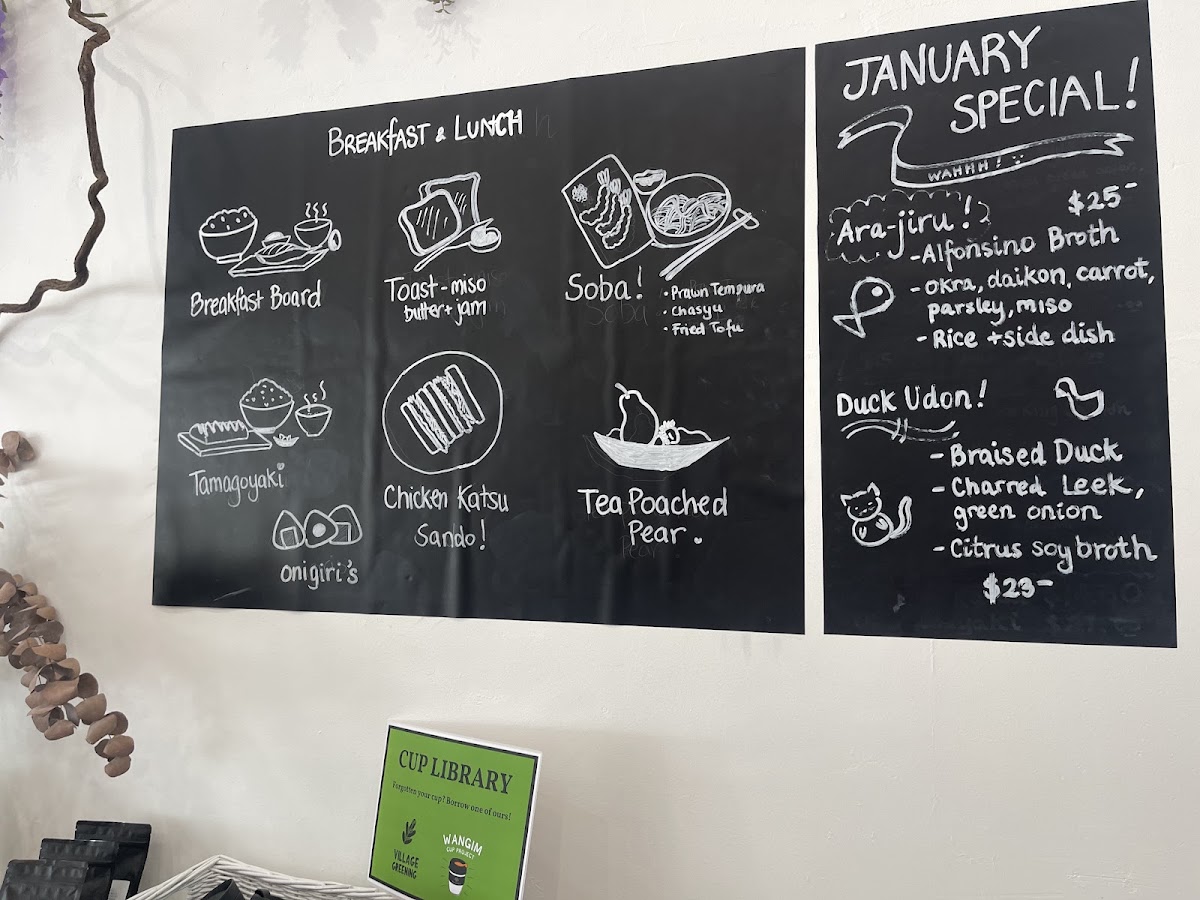 BREAKFAST & LUNCH
Breakfast Board
Toast - miso
butter + jam
Soba!
• Prawn Tempura
• Chasyu
• Fried Tofu
Tamagoyaki
onigiri's
Chicken Katsu
Sando!
Tea Poached
Pear.
JANUARY
SPECIAL!
WAHHH!
$25-
Ara-jiru!
- Alfonsino Broth
- okra, daikon, carrot,
parsley, miso
- Rice + side dish
Duck Udon!
- Braised Duck
- Charred Leek,
green onion
- Citrus soy broth
$23-
CUP LIBRARY
Forgotten your cup? Borrow one of ours!
VILLAGE
GREENING
WANGIM
CUP PROJECT